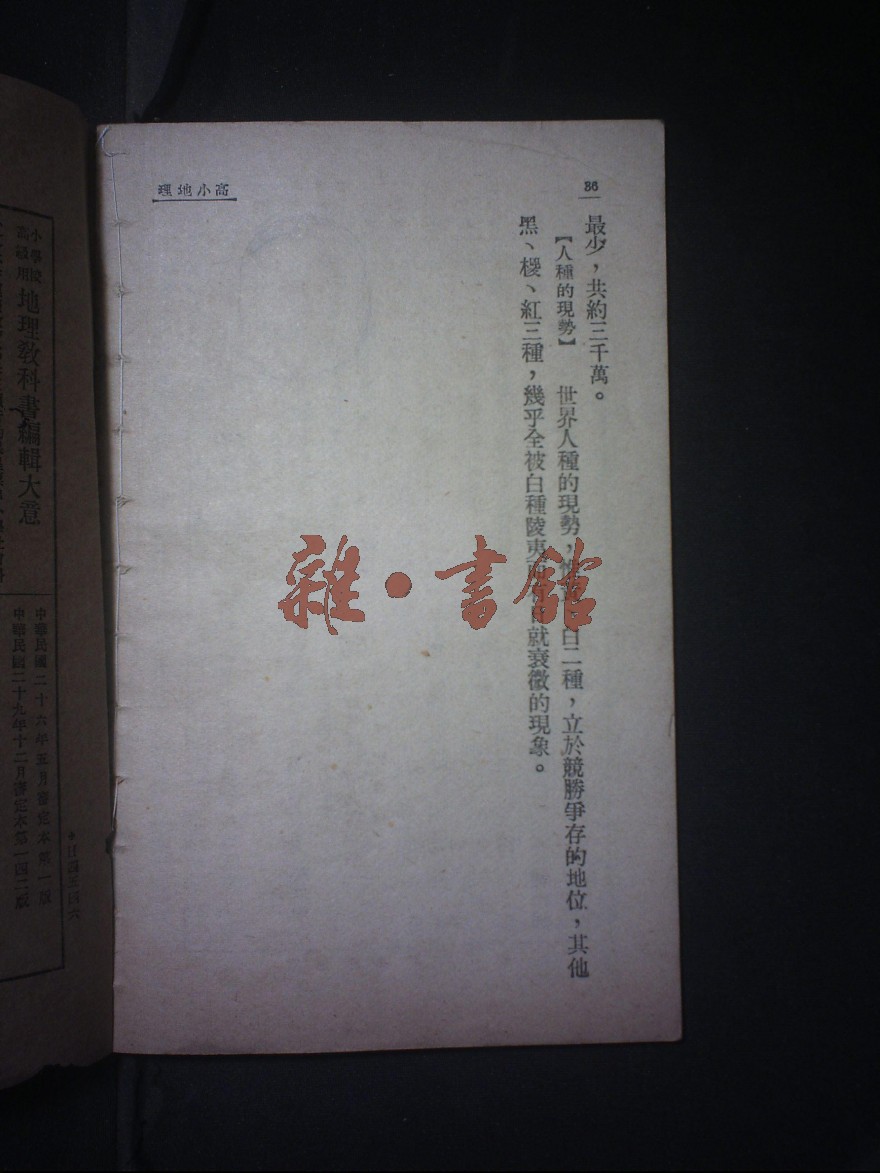 86
高小地理
最少，共約三千萬。
【人種的現勢】　世界人種的現勢，惟黃白二種，立於競勝爭存的地位，其他
黑、椶、紅三種，幾乎全被白種陵夷而 就衰微的現象。
雜·書館
小學校
高級用
地理教科書編輯大意
中華民國二十六年五月審定本第一版
中華民國二十九年十二月審定本第一四二版